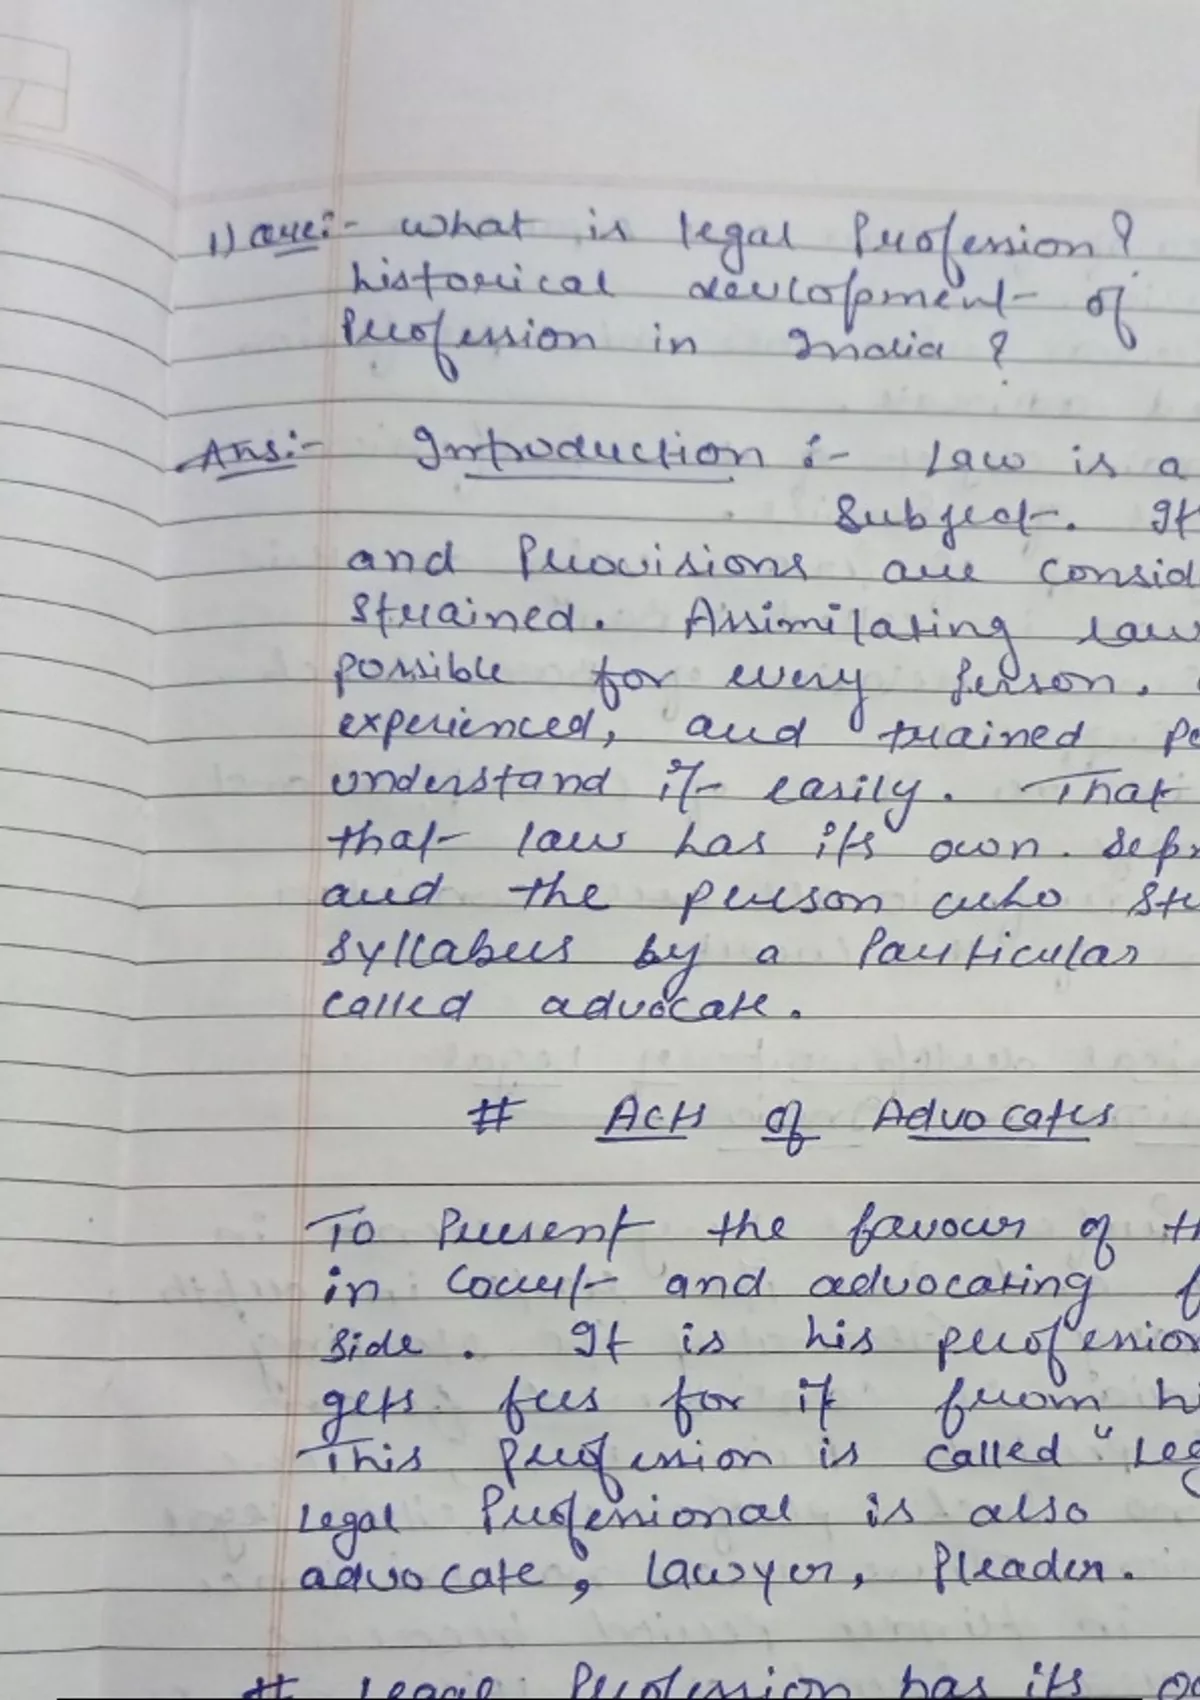 1) Que:- What is legal Profession?
historical development of
Profession in India ?
Ans:- Introduction :- Law is a
Subject. It
and Provisions are consid
strained. Assimilating law
possible for every person.
experienced, and trained pe
understand it easily. That
that law has its own sepr
and the person who stu
syllabus by a Particular
called advocate.
# Acts of Advocates
To Present the favour of th
in Court and advocating f
side. It is his profession
gets fees for it from hi
This profession is called "Leg
Legal Professional is also
advocate, Lawyer, Pleader.
# Legal Profession has its o